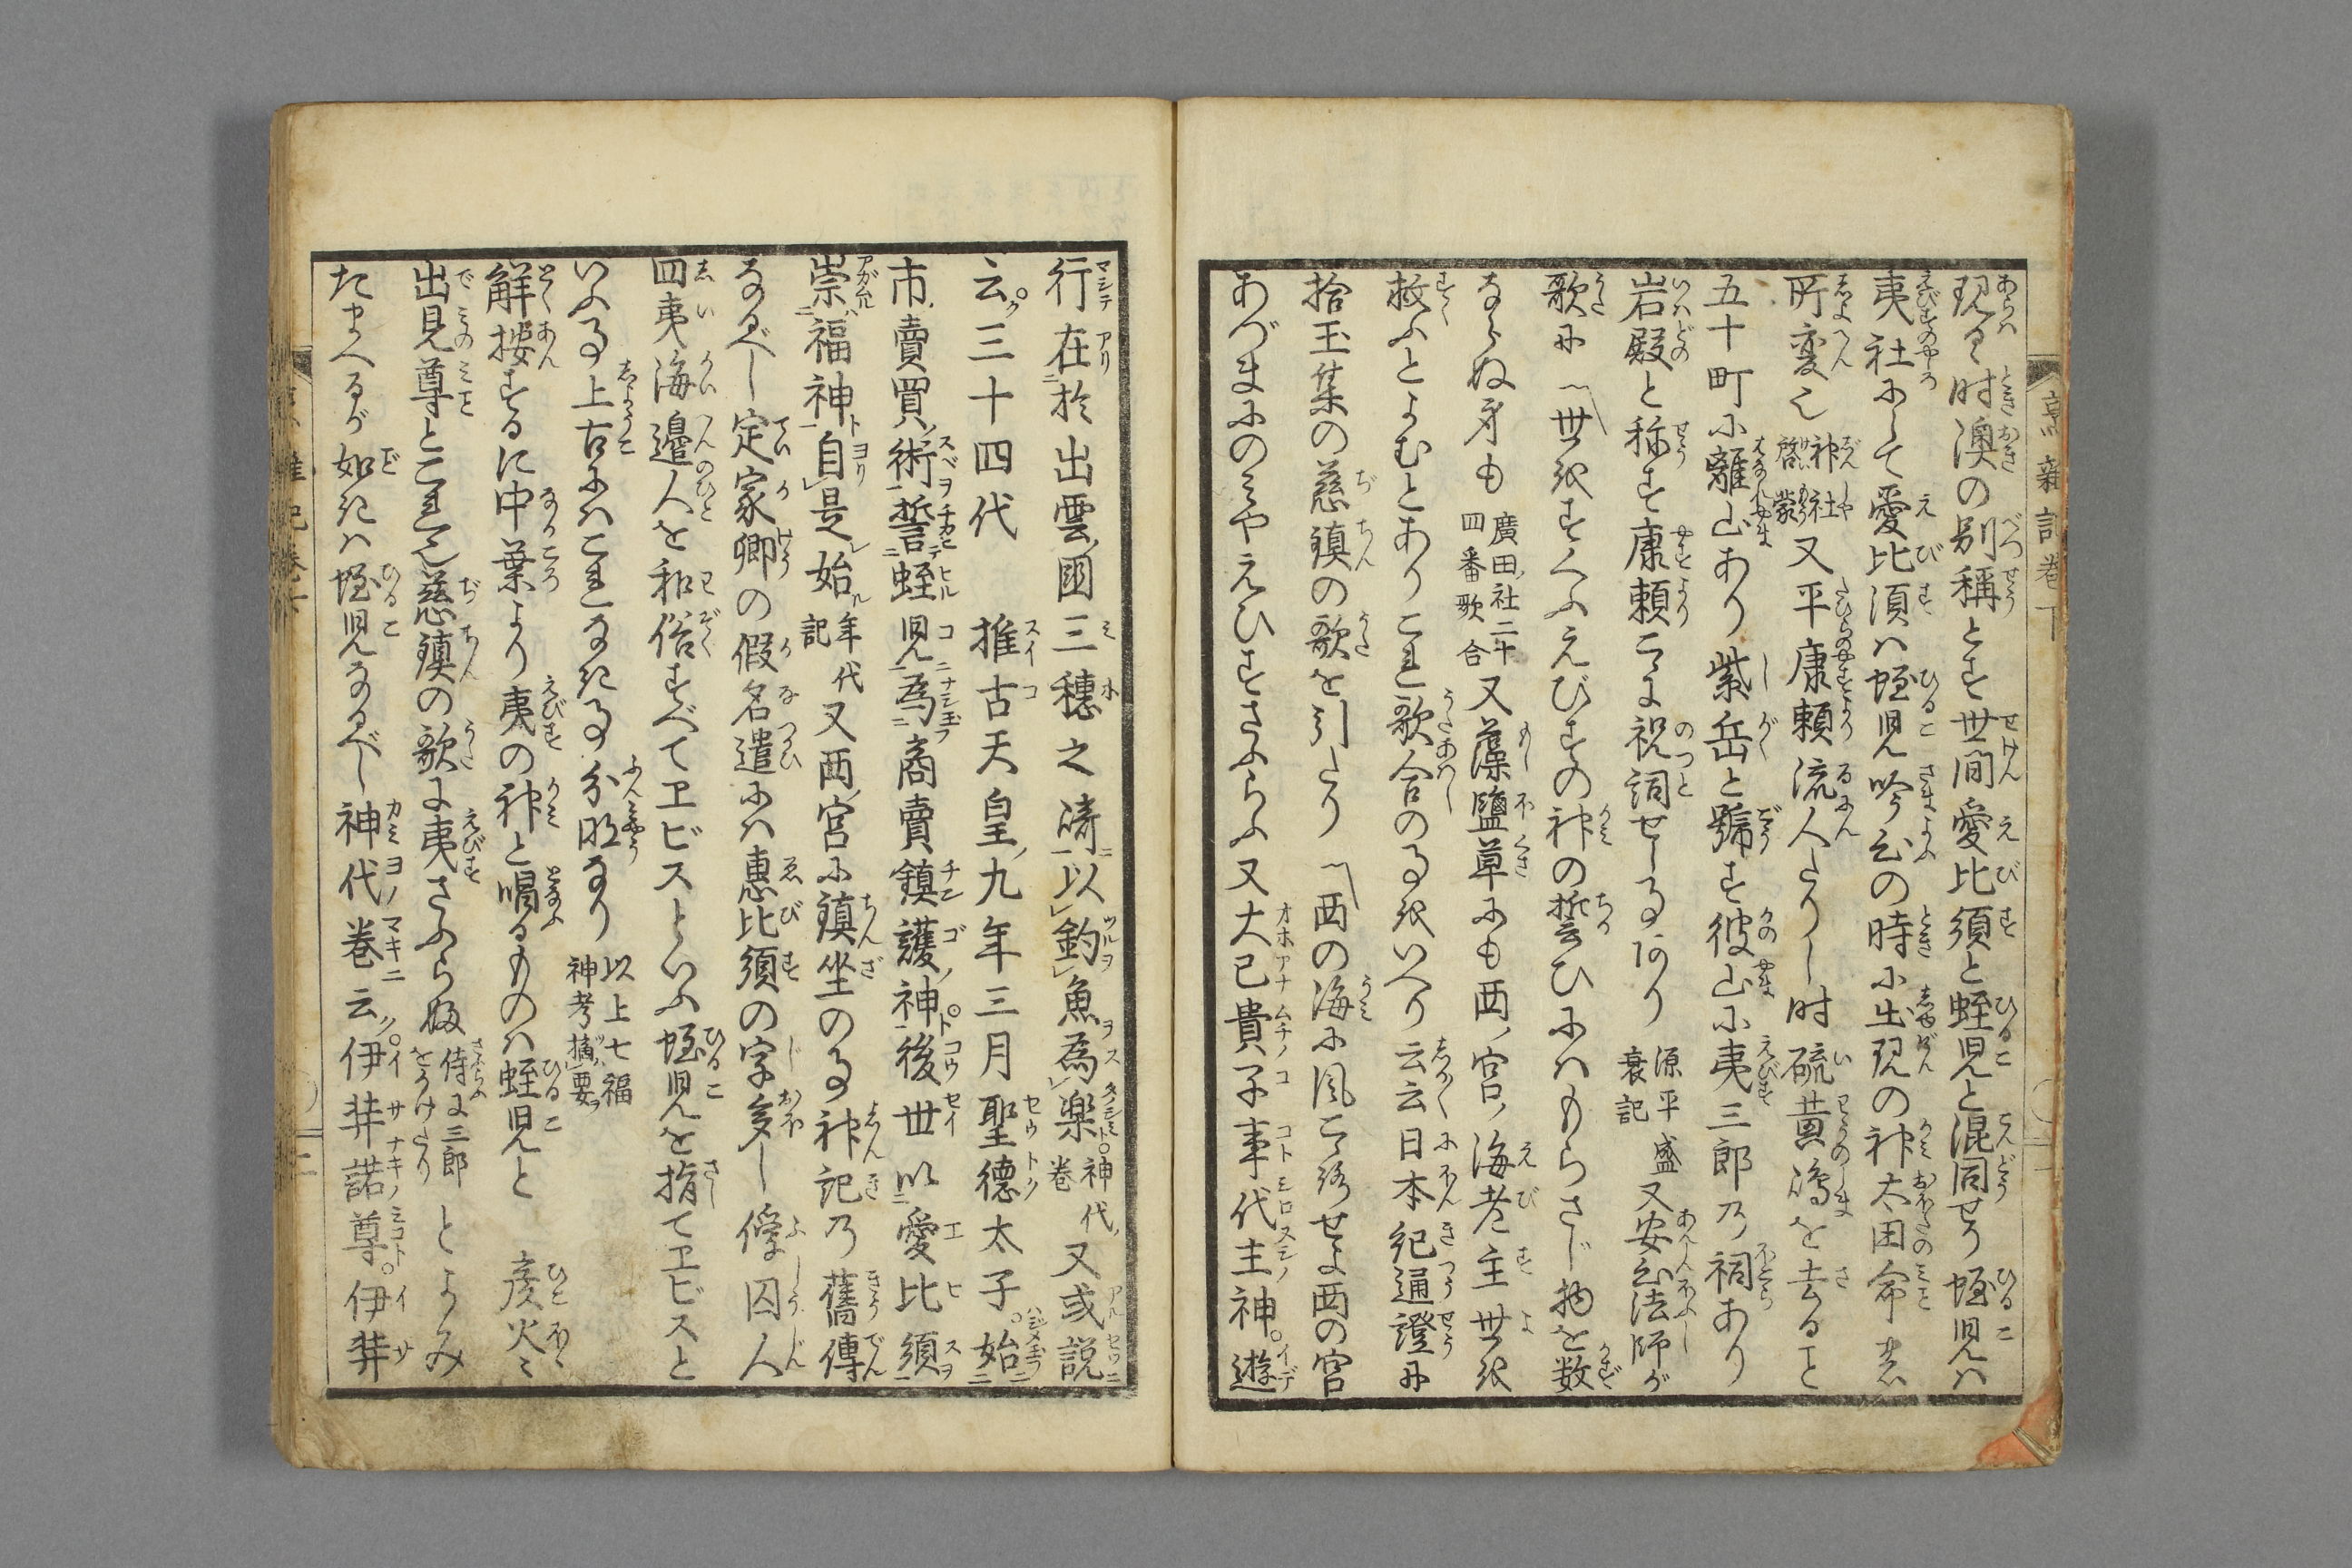 現るゝ時澳の別稱とす世間愛比須と蛭児と混同せり蛭児ハ
夷社にして愛比須ハ蛭児吟ふの時に出現の神太田命
所変也 神社啓蒙 又平康頼流人たりし時硫黄嶋を去ること
五十町に離山あり紫岳と號す彼山に夷三郎乃祠あり
岩殿と称す康頼こゝに祝詞せし事あり 源平盛衰記 又安心法師が
歌に 世をすくふえびすの神の誓ひにハもらさじ物を数
ならぬ身も 廣田ノ社二十四番歌合 又藻鹽草にも西ノ宮ノ海老主世を
救ふとよむとありこれ歌合の事をいへり云云日本紀通證に
拾玉集の慈鎮の歌を引たり 西の海に風こゝろせよ西の宮
あづまにのミやえひすさふらふ又大己貴ノ子事代主神。遊
行在於出雲ノ國三穂之碕以釣魚為樂 神代ノ巻 又或説
云。三十四代 推古天皇ノ九年三月聖德太子。始
市。賣買ノ術誓蛭児為商賣鎮護ノ神。後世以愛比須
崇福神自是始 年代記 又西ノ宮に鎮坐の事神記乃舊傳
なるべし定家卿の假名遣にハ惠比須の字多し俘囚人
四夷海邉人を和俗すべてヱビスといふ蛭児を指てヱビスと
いふ事上古にハこれなき事分明なり 以上七福神考摘要
解按するに中葉より夷の神と唱るものハ蛭児と 彦火々
出見尊とこれ也慈鎮の歌に夷さふらぬ 侍に三郎をかけたり とよみ
たまへるが如きハ蛭児なるべし神代巻云。伊弉諾尊。伊弉